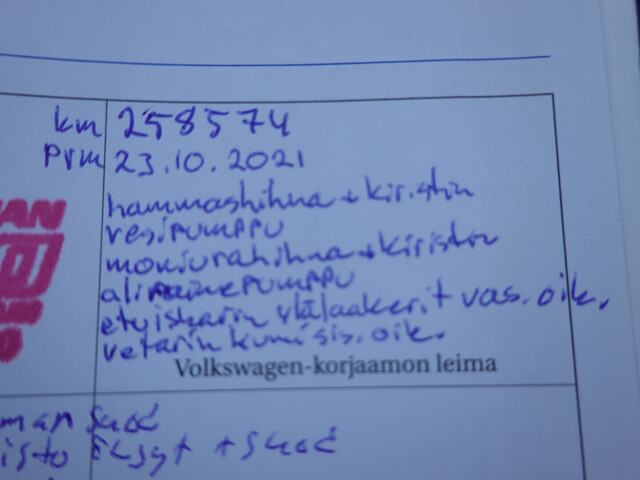 km 258574
Pvm 23.10.2021
hammashihna + kiristin
vesipumppu
moniurahihna + kiristin
alipainepumppu
etuiskarin ylälaakerit vas. oik.
vetarin kumi sis. oik.
Volkswagen-korjaamon leima